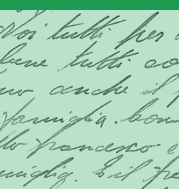 Voi tutti per
bene tutti co
no anche il f
famiglia. bon
lo francesco e
miglia. E il fra